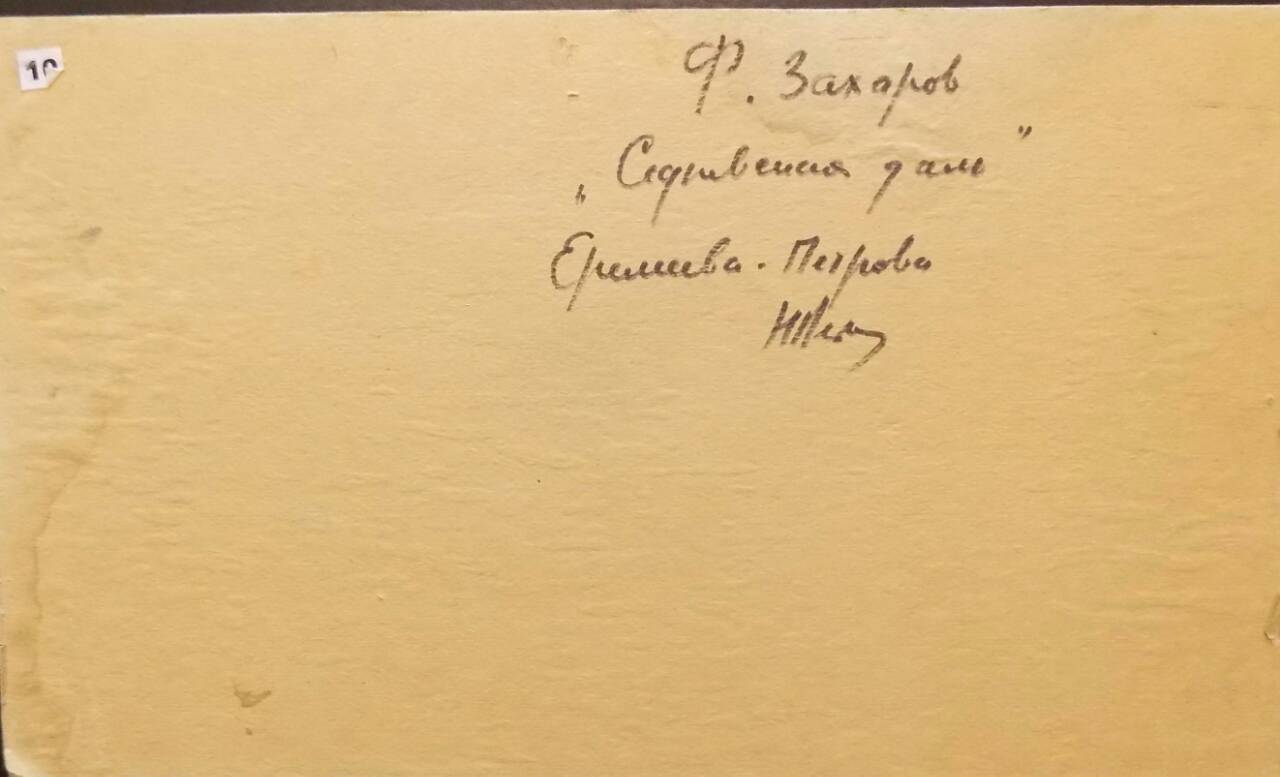 10
Ф. Захаров
„Седневская даль”
Еремиева-Петрова